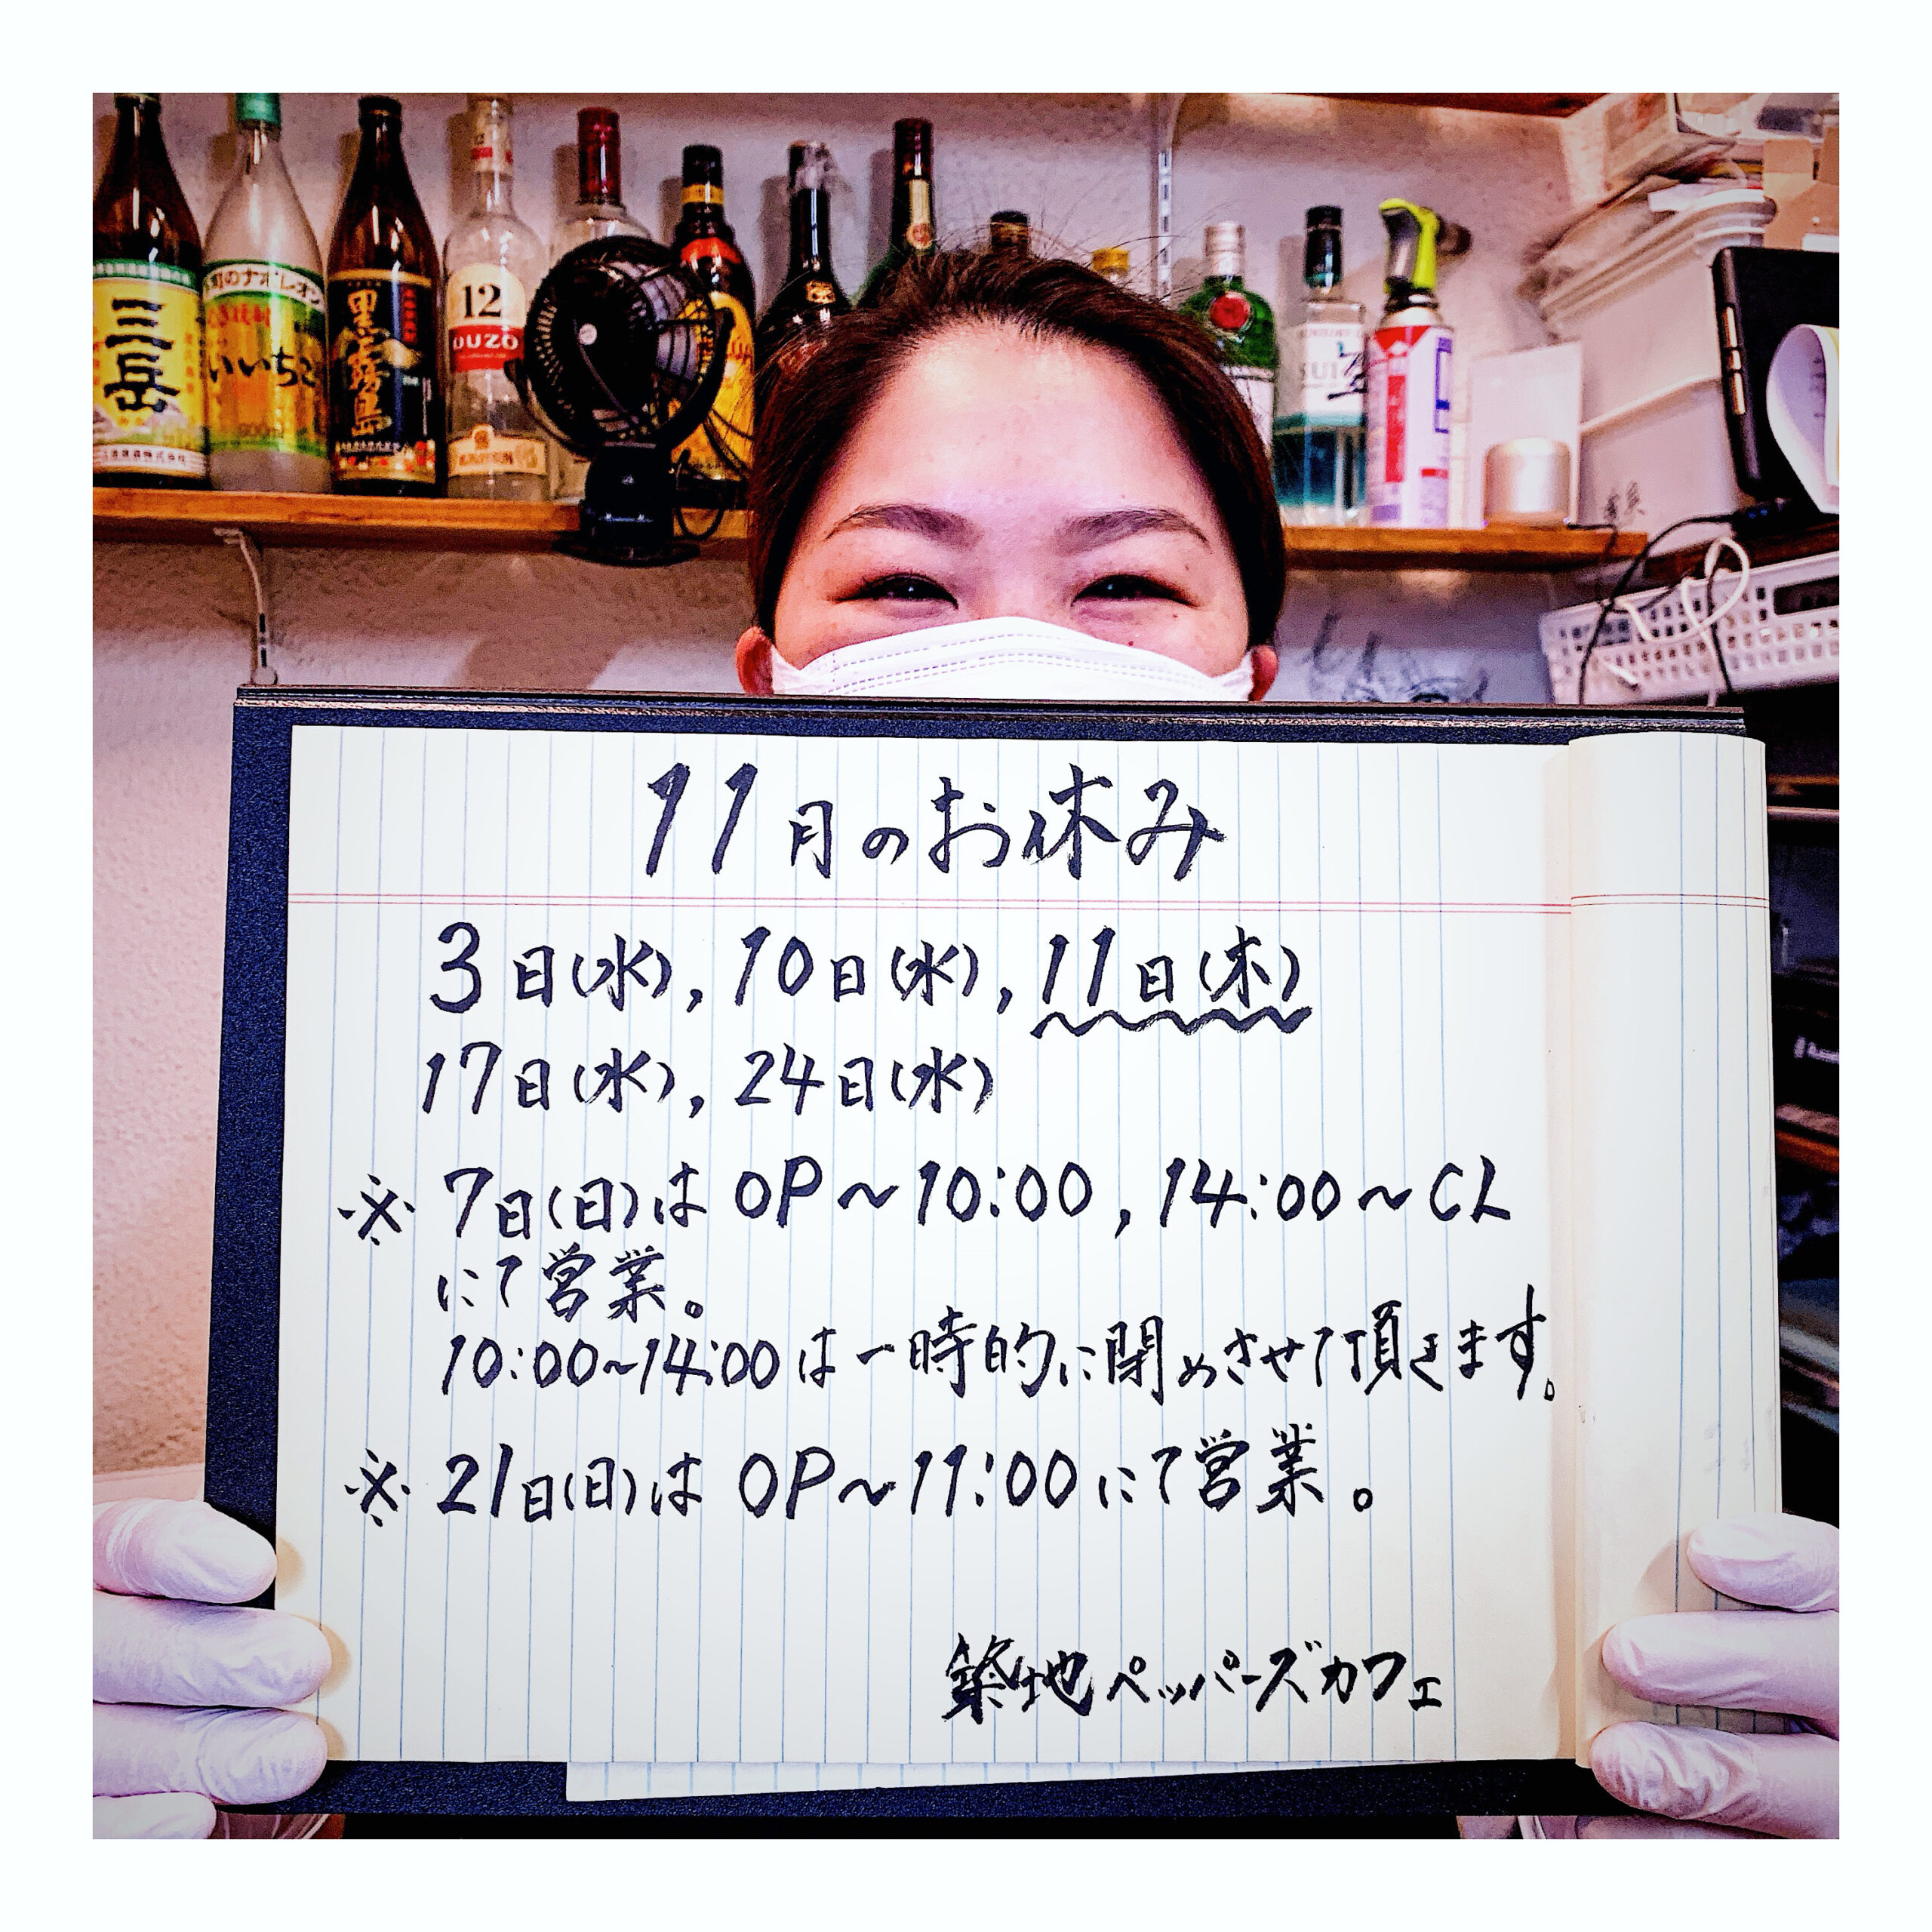 三岳
いいちこ
黒霧島
12
OUZO
11月のお休み
3日(水), 10日(水), 11日(木)
17日(水), 24日(水)
※ 7日(日)は OP～10:00, 14:00～CL
にて営業。
10:00～14:00は一時的に閉めさせて頂きます。
※ 21日(日)は OP～11:00にて営業。
築地ペッパーズカフェ